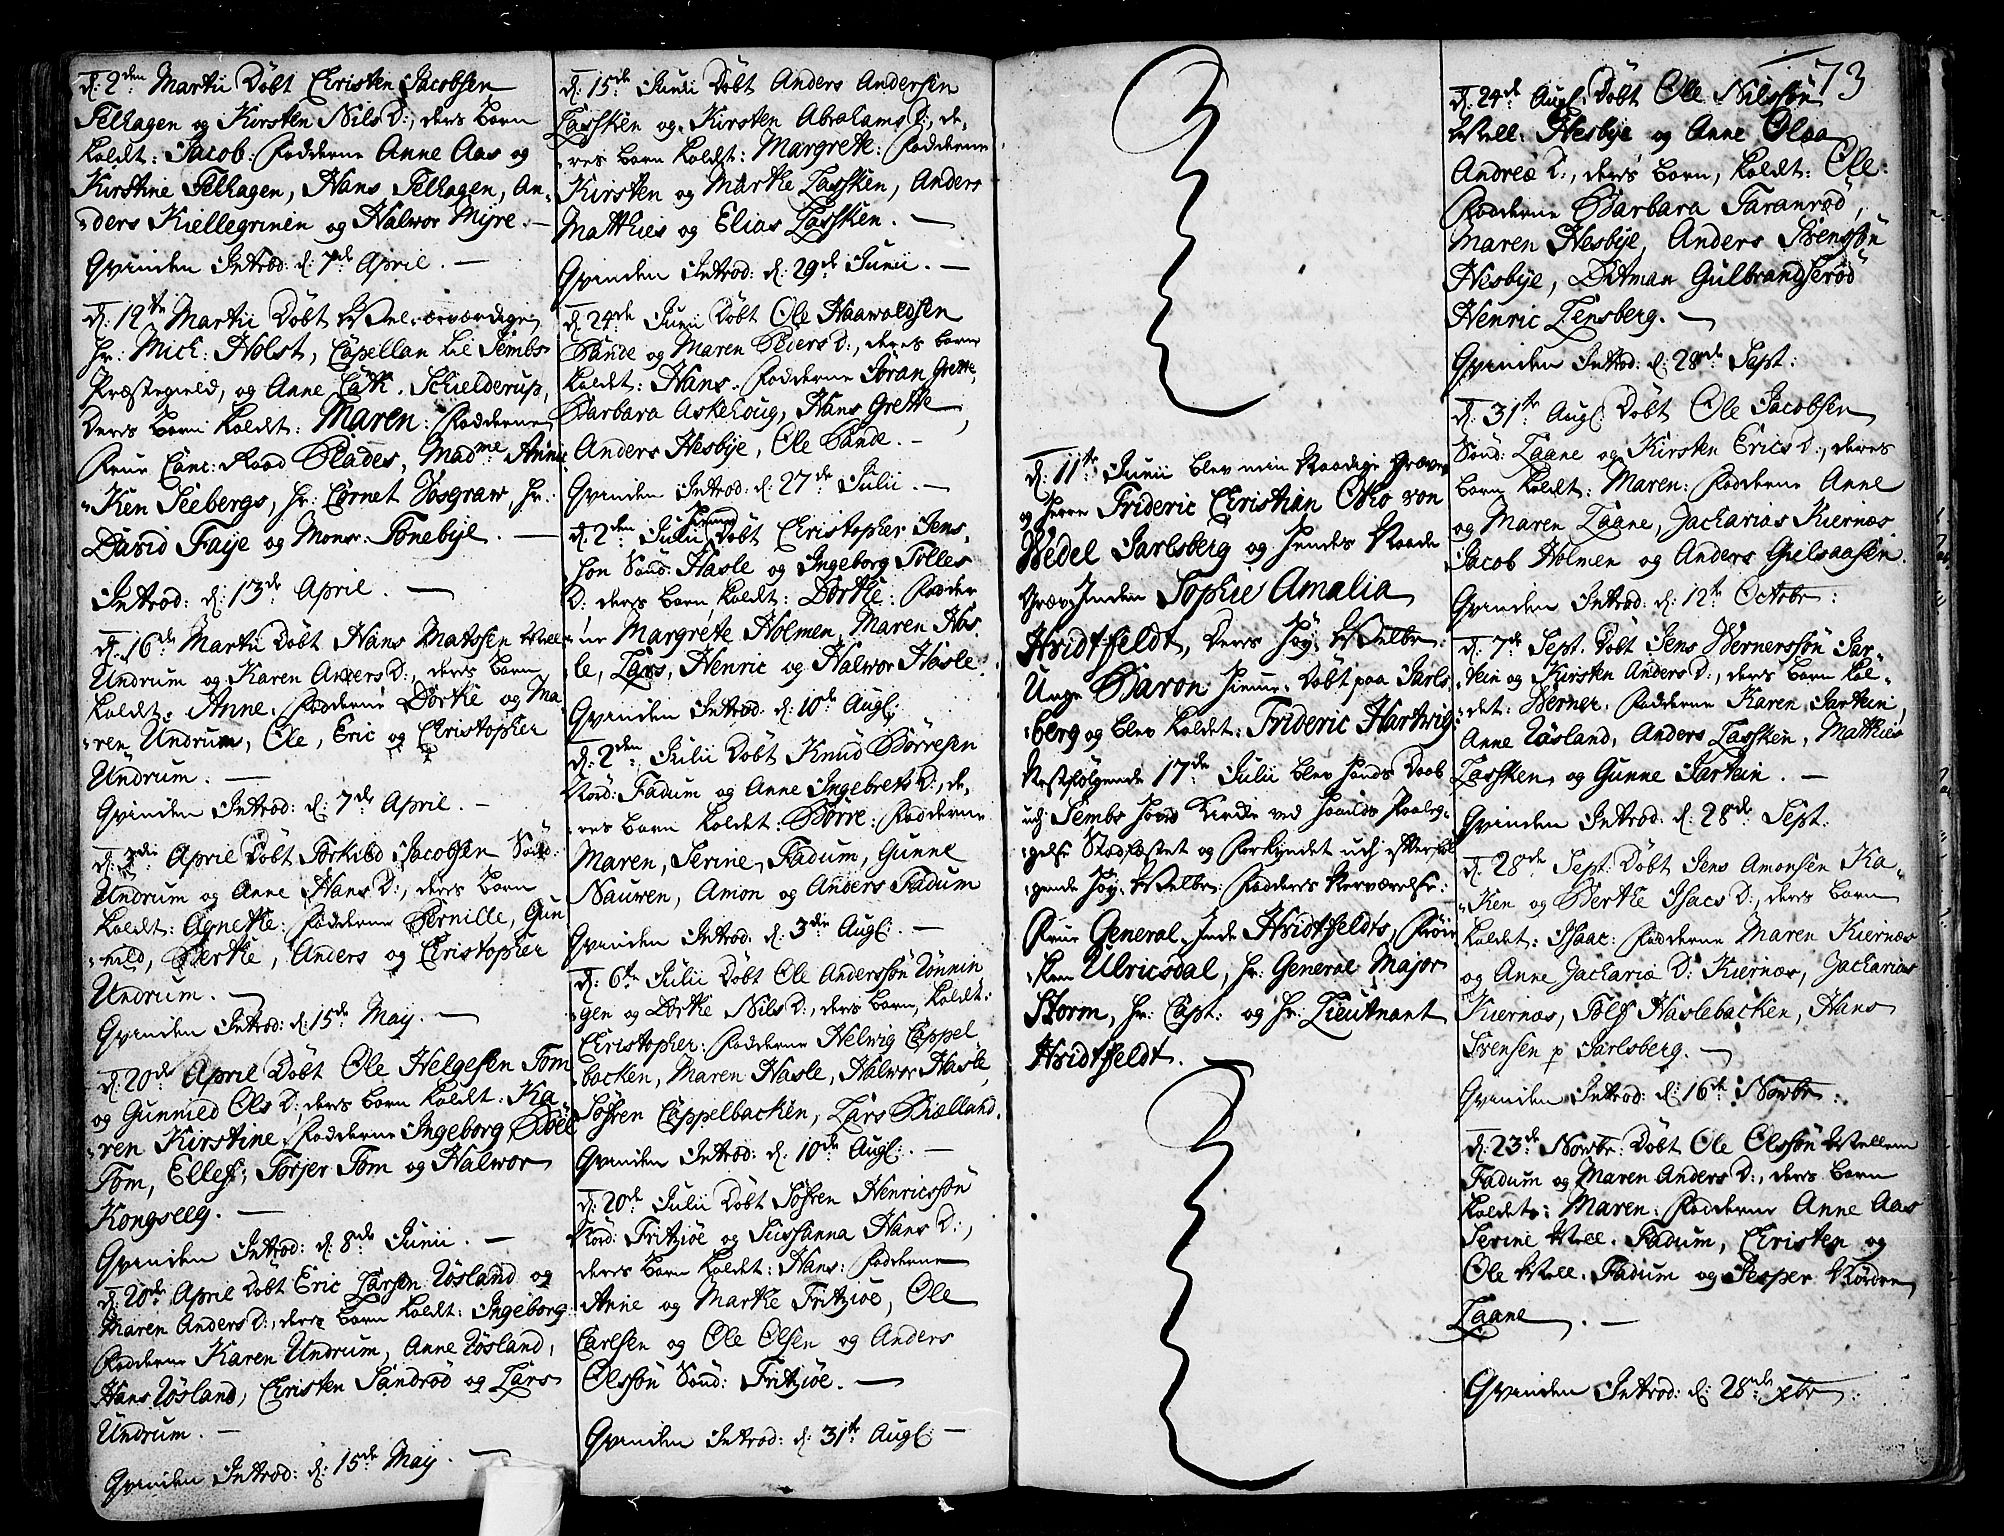 d: 2den Martii Döbt Christen Jacobsen
Felhagen og Kirsten Nils D:, deres barn
kaldt: Jacob: Fadderne Anne Aas og
Kirstine Felhagen, Hans Felhagen, An-
ders Kiellegrinen og Halvor Myre. —
Qvinden Introd: d: 7de April. —
d: 12te Martii Döbt Vel-ærværdige
Hr: Mich: Holst, Capellan til Sembs
Præstegield, og Anne Cath. Schielderup,
deres barn kaldt: Maren: Fadderne
Frue Canc: Raad Blades, Madme Anni-
ken Seebergs, Hr: Cornet Vosgraw, Hr:
David Faye og Monsr. Tönebye. —
Introd: d: 13de April. —
d: 16de Martii Döbt Hans Matssen Vell
Undrum og Karen Anders D:, deres barn
kaldt: Anne. Fadderne Dortke og Ma
ren Undrum, Ole, Eric og Christopher
Undrum. —
Qvinden Introd: d: 7de April. —
April Döbt Torkild Jacobsen Sönd:
Undrum og Anne Hans D:, deres barn
kaldt: Agnetke: Fadderne Pernille, Gun
hild, Bertke, Anders og Christopher
Undrum. —
Qvinden Introd: d: 15de May. —
d: 20de April Döbt Ole Helgesen Tom
og Gunnild Ols D: deres barn kaldt: Ka
ren Kirstine, Fadderne Ingeborg Böel
Tom, Ellef, Torjer Tom og Halvor
Kongseeg. —
Qvinden Introd: d: 8de Junii. —
d: 20de April Döbt Eric Larsen Rösland og
Maren Anders D:, deres barn kaldt: Ingeborg:
Fadderne Karen Undrum, Anne Rösland,
Hans Rösland, Christen Sandröd og Lars
Undrum. —
Qvinden Introd: d: 15de May. —
d: 15de Junii Döbt Anders Andersen
Lassken og Kirsten Abrahams D:, de-
res barn kaldt: Margrete: Fadderne
Kirsten og Martke Lassken, Anders
Matthies og Elias Lassken. —
Qvinden Introd: d: 29de Junii. —
d: 24de Junii Döbt Ole Haavoldsen
Sande og Maren Peders D:, deres barn
kaldt: Hans. Fadderne Jöran Grette,
Barbara Askehoug, Hans Grette,
Anders Hesbye, Ole Sande. —
Qvinden Introd: d: 27de Julii. —
d: 2den Julii Hiemme Döbt Christopher Jens-
sön Sönd: Hasle og Ingeborg Tolles
D: deres barn kaldt: Dortke: Fadder
ne Margrete Holmen, Maren Has-
le, Lars, Henric og Halvor Hasle.
Qvinden Introd: d: 10de Aug:
d: 2den Julii Döbt Knud Börresen
Nord: Fadum og Anne Ingebrets D:, de-
res barn kaldt: Börre: Fadderne
Maren, Serine, Fadum, Gunne
Nauren, Amon og Anders Fadum
Qvinden Introd: d: 3die Aug: —
d: 6te Julii Döbt Ole Anderssön Rönnin
gen og Dortke Nils D:, deres barn, kaldt:
Christopher: Fadderne Helvig Cappel
backen, Maren Hasle, Halvor Hasle,
Söfren Cappelbacken, Lars Bielland.
Qvinden Introd: d: 10de Aug: —
d: 20de Julii Döbt Söfren Henricssön
Nord: Fritziöe og Sussanna Hans D:,
deres barn kaldet: Hans: Fadderne
Anne og Martke Fritziöe, Ole
Carlsen og Ole Olsen og Anders
Olssön Sönd: Fritziöe. —
Qvinden Introd: d: 31te Aug: —
d: 11te Junii blev min Naadige Greve
og Herre Frideric Christian Otto von
Wedel Jarlsberg og Hendes Naade
Grevinden Sophie Amalia
Hvidtfeldt, deres Höy-Velbr:
Unge Baron hiemme Döbt paa Jarls
berg og blev kaldet: Frideric Hartvig:
Nestfölgende 17de Julii blev hands Daab
udj Sembs Hoved Kirke ved Haands Paaleg-
gelse Stadfæstet og Forkyndet udj efterföl
gende Höy-Velbr: Fadderes Nerværelse:
Frue General-Inde Hvidtfeldts, Fröi-
ken Ulricsdal, Hr: General Major
Storm, Hr: Capt: og Hr: Lieutnant
Hvidtfeldt.
73
d: 24de Aug: Döbt Ole Nilssön
Vell: Hesbye og Anne Olea
Andreæ D:, deres barn, kaldt: Ole:
Fadderne Barbara Taranröd,
Maren Hesbye, Anders Svenssön
Hesbye, Ditman Gulbrandsröd
Henric Lensberg. —
Qvinden Introd: d: 28de Sept:
d: 31te Aug: Döbt Ole Jacobsen
Sönd: Laane og Kirsten Erics D:, deres
barn kaldt: Maren: Fadderne Anne
og Maren Laane, Zacharias Kiernæs
Jacob Holmen og Anders Gielsaasen.
Qvinden Introd: d: 12te Octobr:
d: 7de Sept. Döbt Jens Wernerssön Jar-
tein og Kirsten Anders D:, deres barn kal-
det: Werner. Fadderne Karen Jartein,
Anne Rösland, Anders Lassken, Matthies
Lassken, og Gunne Jartein. —
Qvinden Introd: d: 28de Sept:
d: 28de Sept: Döbt Jens Amonsen Ra-
ken og Bertke Isacs D:, deres barn
kaldet: Isaac: Fadderne Maren Kiernæs
og Anne Zachariæ D: Kiernæs, Zacharias
Kiernæs, Tolf Haslebacken, Hans
Svensen p Jarlsberg. —
Qvinden Introd: d: 16te Novbr:
d: 23de Novbr: Döbt Ole Olssön Vellem
Fadum og Maren Anders D:, deres barn
kaldet: Maren: Fadderne Anne Aas
Serine Vell. Fadum, Christen og
Ole Vell. Fadum og Jesper Norden
Laane. —
Qvinden Introd: d: 28de xbr: